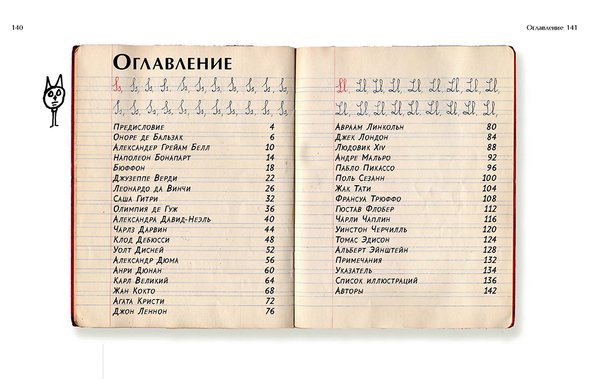 140
Оглавление 141
Оглавление
Ss, Ss, Ss, Ss, Ss, Ss, Ss, Ss, Ss, Ss,
Ss, Ss, Ss, Ss, Ss, Ss, Ss, Ss, Ss, Ss,
Предисловие 4
Оноре де Бальзак 6
Александер Грейам Белл 10
Наполеон Бонапарт 14
Бюффон 18
Джузеппе Верди 22
Леонардо да Винчи 26
Саша Гитри 32
Олимпия де Гуж 36
Александра Давид-Неэль 40
Чарлз Дарвин 44
Клод Дебюсси 48
Уолт Дисней 52
Александр Дюма 56
Анри Дюнан 60
Карл Великий 64
Жан Кокто 68
Агата Кристи 72
Джон Леннон 76
Ll, Ll, Ll, Ll, Ll, Ll, Ll, Ll,
Ll, Ll, Ll, Ll, Ll, Ll, Ll, Ll,
Авраам Линкольн 80
Джек Лондон 84
Людовик XIV 88
Андре Мальро 92
Пабло Пикассо 96
Поль Сезанн 100
Жак Тати 104
Франсуа Трюффо 108
Гюстав Флобер 112
Чарли Чаплин 116
Уинстон Черчилль 120
Томас Эдисон 124
Альберт Эйнштейн 128
Примечания 132
Указатель 134
Список иллюстраций 136
Авторы 142